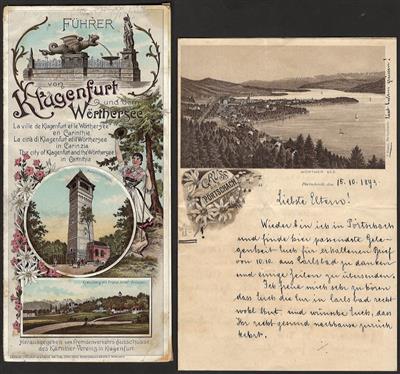 FÜHRER
von
Klagenfurt
und dem
Wörthersee
La ville de Klagenfurt et le Wörthersee
en Carinthie
La città di Klagenfurt ed il Wörthersee
in Carinzia
The city of Klagenfurt and the Wörthersee
in Carinthia
Kreuzberg mit Franz Josef
Herausgegeben vom Fremdenverkehrs-Ausschusse
des Kärntner-Vereins in Klagenfurt.
WÖRTHER SEE
GRUSS
aus
PÖRTSCHACH
Pörtschach, 15.10.1893
Liebste Eltern!
Wieder bin ich in Pörtschach
und finde hier passendste Gele-
genheit Euch für erhaltenen Brief
vom 10.10. aus Carlsbad zu danken
und einige Zeilen zu übersenden.
Ich freue mich sehr zu hören
dass Euch die Cur in Carlsbad recht
wohl thut, und wünsche Euch, dass
Ihr recht gesund nachhause zurück
kehrt.